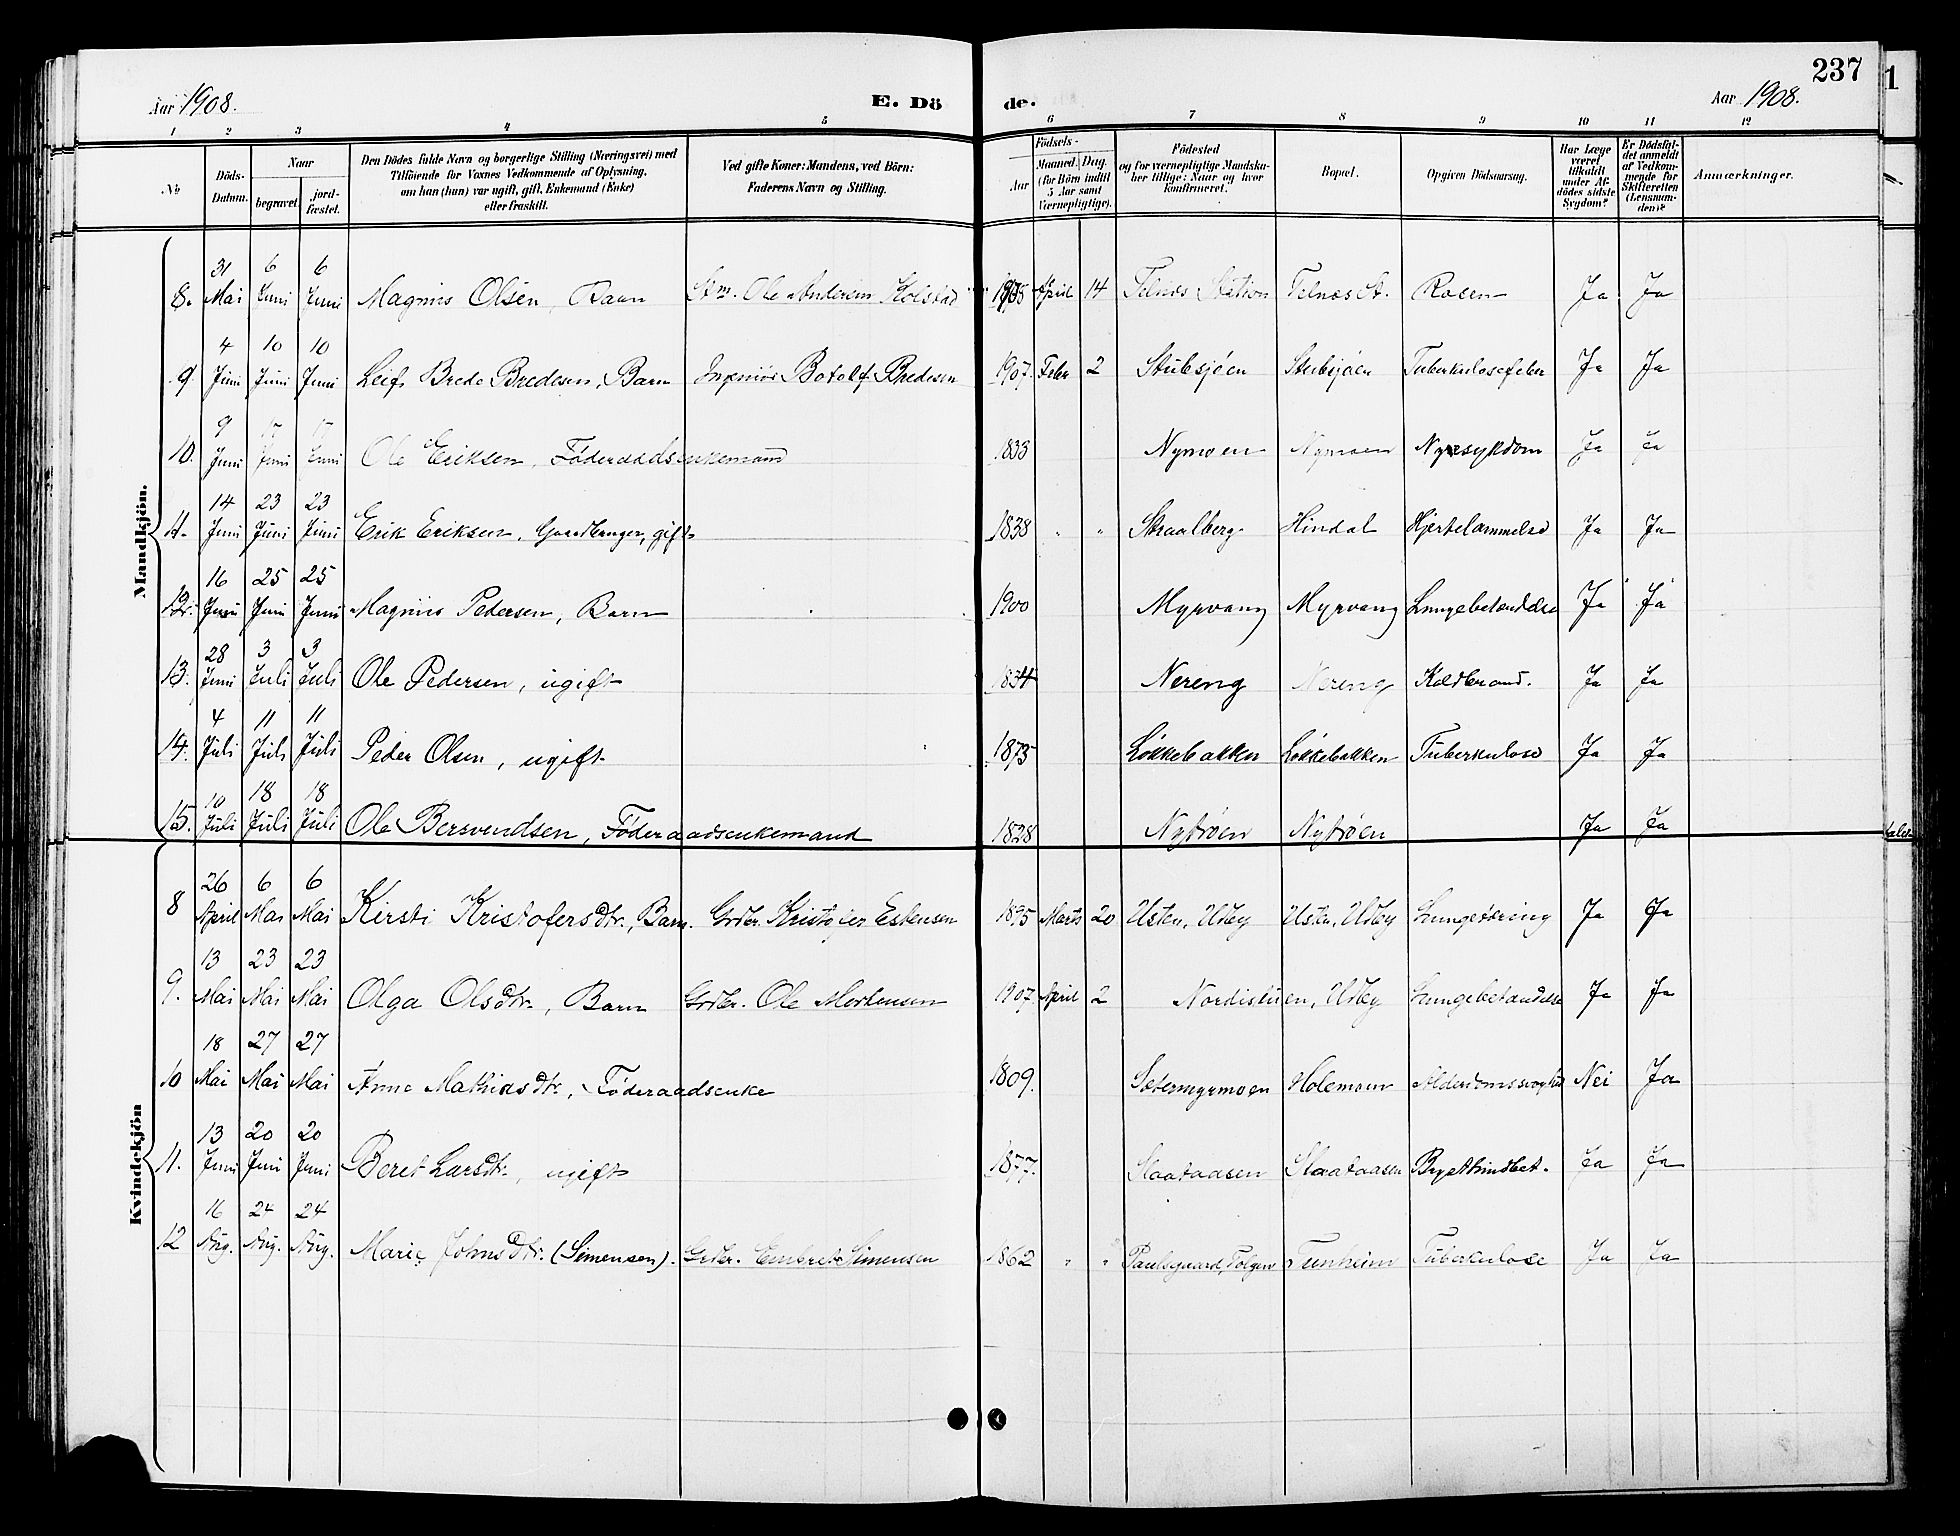 237
Aar 1908. E. Dö de. Aar 1908.
1 2 3 4 5 6 7 8 9 10 11 12
No Döds-Datum. Naar begravet jord-fæstet. Den Dödes fulde Navn og borgerlige Stilling (Næringsvei) med Tilföiende for Voxnes Vedkommende af Oplysning, om han (hun) var ugift, gift, Enkemand (Enke) eller fraskilt. Ved gifte Koner: Mandens, ved Börn: Faderens Navn og Stilling. Födsels- Aar Maaned. Dag. (for Börn indtil 5 Aar samt Værnepligtige). Födested og for værnepligtige Mandskaber tillige: Naar og hvor konfirmeret. Bopæl. Opgiven Dödsaarsag. Har Læge været tilkaldt under Afdödes sidste Sygdom? Er Dödsfaldet anmeldt af Vedkommende for Skifteretten (Lensmanden)? Anmærkninger.
Mandkjön.
8. 31 Mai 6 Juni 6 Juni Magnus Olsen, Barn Stm. Ole Andersen Kolstad April 14 Telnes Station Telnes St. Rosen Ja Ja
9. 4 Juni 10 Juni 10 Juni Leif Brede Bredesen, Barn Ingeniør Botolf Bredesen 1907. Febr 2 Stubsjøen Stubsjøen Tuberkulosefeber Ja Ja
10. 9 Juni Juni Juni Ole Eriksen, Føderaadsenkemand 1833 Nymoen Nymoen Nyresykdom Ja Ja
11. 14 Juni 23 Juni 23 Juni Erik Eriksen, Gaardbruger, gift 1838 " " Straalberg Hindal Hjertelammelse Ja Ja
12. 16 Juni 25 Juni 25 Juni Magnus Pedersen, Barn 1900 Myrvang Myrvang Lungebetændelse Ja Ja
13. 28 Juni 3 Juli 3 Juli Ole Pedersen, ugift 1834 Nereng Nereng Koldbrand. Ja Ja
14. 4 Juli 11 Juli 11 Juli Peder Olsen, ugift 1873 Løkkebakken Løkkebakken Tuberkulose Ja Ja
15. 10 Juli 18 Juli 18 Juli Ole Bersvendsen, Føderaadsenkemand 1828 Nytrøen Nytrøen Ja Ja
Kvindekjön
8 26 April 6 Mai 6 Mai Kirsti Kristofersdtr., Barn. Grdbr. Kristofer Estensen 1895 Marts 20 Usten, Udby Usten, Udby Lungetæring Ja Ja
9. 13 Mai 23 Mai 23 Mai Olga Olsdtr., Barn Grdbr. Ole Mortensen 1907. April 2 Nordistuen, Udby Lungebetændelse Ja Ja
10 18 Mai 27 Mai 27 Mai Anne Mathiasdtr., Føderaadsenke 1809. Sætermyrmoen Holemoen Alderdomssvaghed Nei Ja
11. 13 Juni 20 Juni 20 Juni Beret Larsdtr., ugift 1877. Slaataasen Slaataasen Brysthindebet. Ja Ja
12 16 Aug. 24 Aug. 24 Aug. Marie Johnsdtr. (Simensen). Grdbr. Embret Simensen 1862 " " Paulsgaard, Tolgen Tunheim Tuberkulose Ja Ja